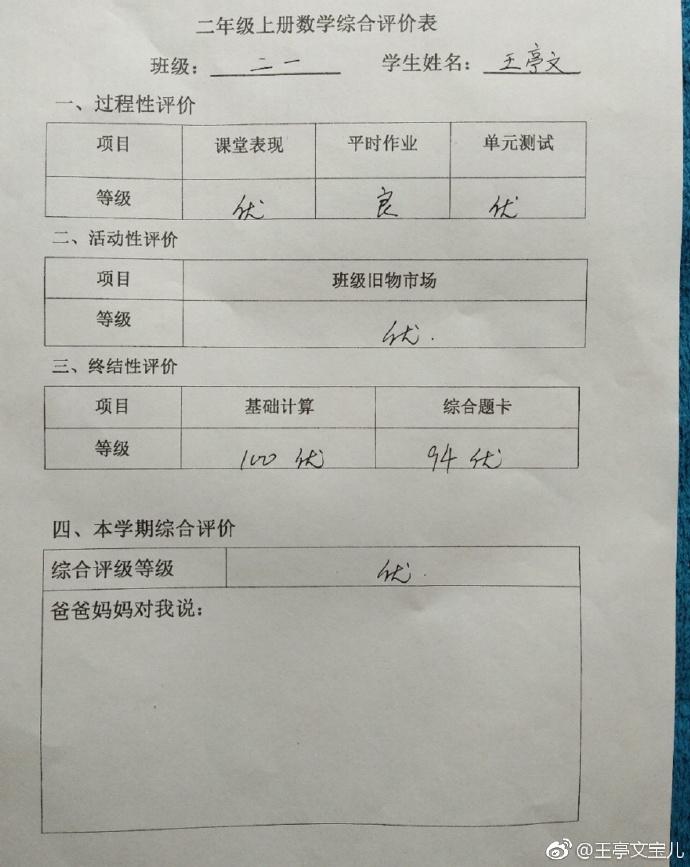 二年级上册数学综合评价表
班级：二一 学生姓名：王亭文
一、过程性评价
项目 课堂表现 平时作业 单元测试
等级 优 良 优
二、活动性评价
项目 班级旧物市场
等级 优.
三、终结性评价
项目 基础计算 综合题卡
等级 100 优 94 优
四、本学期综合评价
综合评级等级 优.
爸爸妈妈对我说：
@王亭文宝儿